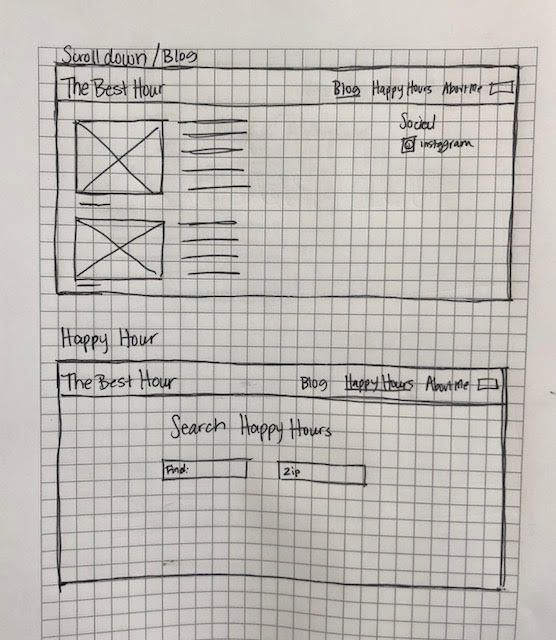 Scroll down / Blog
The Best Hour Blog Happy Hours About Me
Social
instagram
Happy Hour
The Best Hour Blog Happy Hours About Me
Search Happy Hours
Find: Zip